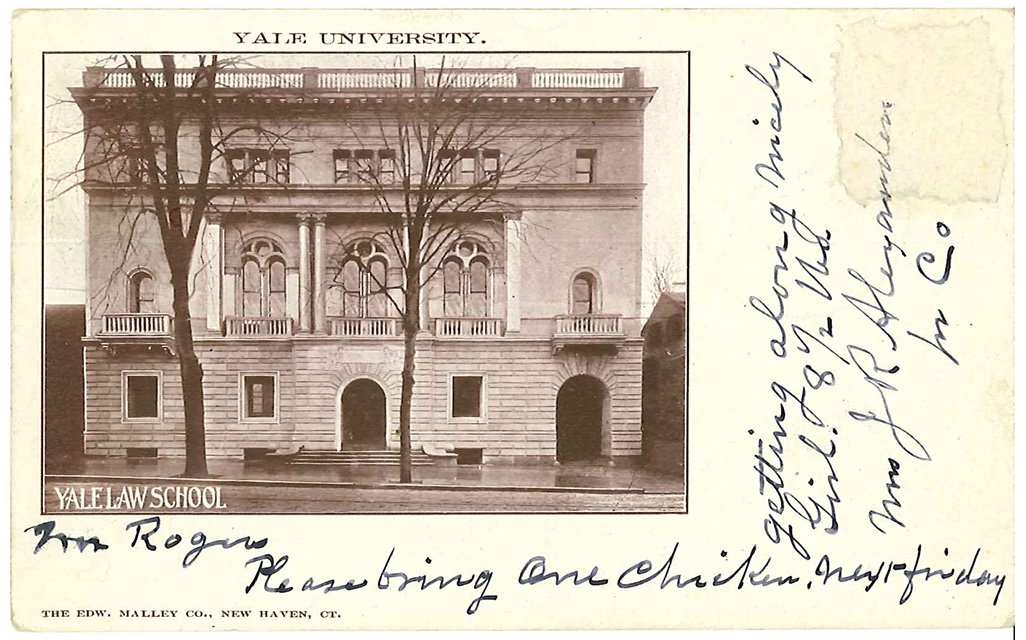 YALE UNIVERSITY.
YALE LAW SCHOOL
Mr Rogers
Please bring One Chicken, next friday
getting along nicely
Girl. 8 1/2 lbs.
Mrs J R Alexander
for Co
THE EDW. MALLEY CO., NEW HAVEN, CT.